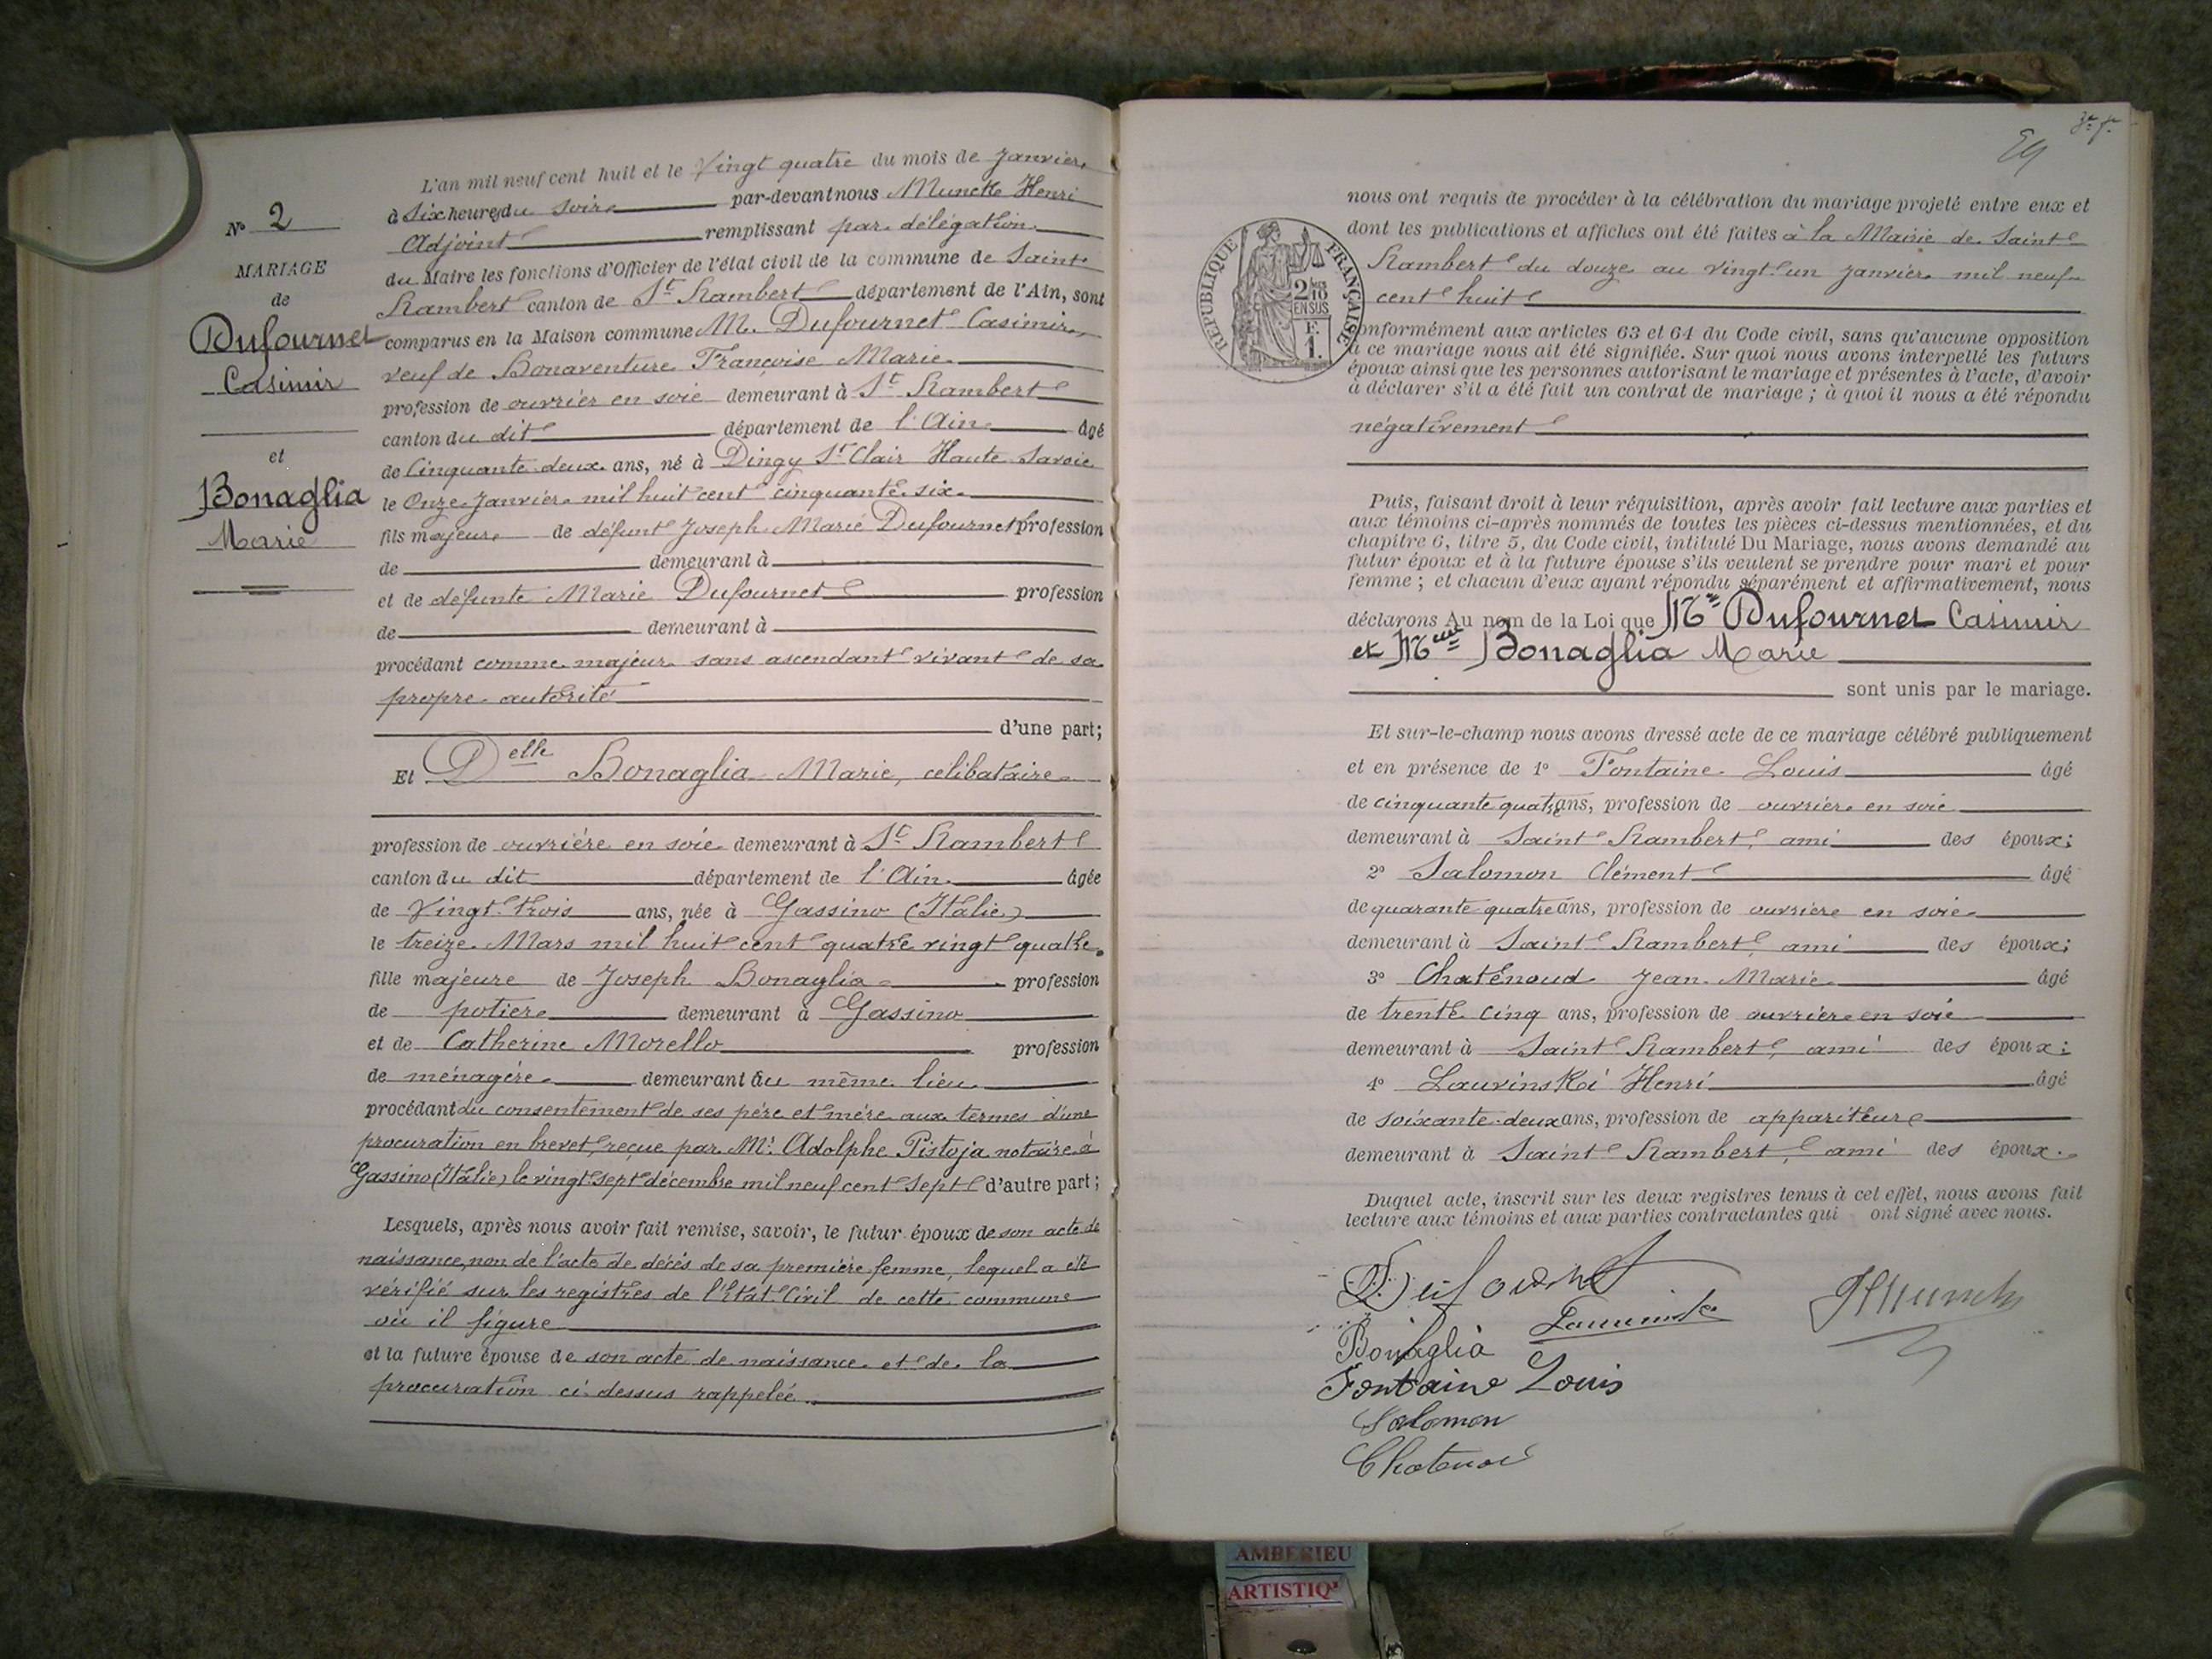 N° 2
MARIAGE
de
Dufournet
Casimir
et
Bonaglia
Marie
L'an mil neuf cent huit et le Vingt quatre du mois de Janvier
à Six heures du soir par-devant nous Muncke Henri
Adjoint remplissant par délégation
du Maire les fonctions d'Officier de l'état civil de la commune de Saint
Rambert canton de St Rambert département de l'Ain, sont
comparus en la Maison commune M. Dufournet Casimir,
veuf de Bonaventure Françoise Marie
profession de ouvrier en soie demeurant à St Rambert
canton du dit département de l'Ain âgé
de Cinquante deux ans, né à Dingy St Clair Haute Savoie
le Onze Janvier mil huit cent cinquante six
fils majeur de défunt Joseph Marie Dufournet profession
de demeurant à
et de défunte Marie Dufournet profession
de demeurant à
procédant comme majeur sans ascendant vivant de sa
propre autorité
d'une part;
Et Delle Bonaglia Marie, célibataire
profession de ouvrière en soie demeurant à St Rambert
canton du dit département de l'Ain âgée
de Vingt trois ans, née à Gassino (Italie)
le treize Mars mil huit cent quatre vingt quatre
fille majeure de Joseph Bonaglia profession
de potier demeurant à Gassino
et de Catherine Morello profession
de ménagère demeurant au même lieu
procédant du consentement de ses père et mère aux termes d'une
procuration en brevet, reçue par Me Adolphe Pistoja notaire à
Gassino (Italie) le vingt sept décembre mil neuf cent sept d'autre part;
Lesquels, après nous avoir fait remise, savoir, le futur époux de son acte de
naissance, non de l'acte de décès de sa première femme, lequel a été
vérifié sur les registres de l'Etat Civil de cette commune
où il figure
et la future épouse de son acte de naissance et de la
procuration ci dessus rappelée
nous ont requis de procéder à la célébration du mariage projeté entre eux et
dont les publications et affiches ont été faites à la Mairie de Saint
Rambert du douze au vingt un janvier mil neuf
cent huit
RÉPUBLIQUE FRANÇAISE
2/10
EN SUS
F.
1.
conformément aux articles 63 et 64 du Code civil, sans qu'aucune opposition
à ce mariage nous ait été signifiée. Sur quoi nous avons interpellé les futurs
époux ainsi que les personnes autorisant le mariage et présentes à l'acte, d'avoir
à déclarer s'il a été fait un contrat de mariage ; à quoi il nous a été répondu
négativement
Puis, faisant droit à leur réquisition, après avoir fait lecture aux parties et
aux témoins ci-après nommés de toutes les pièces ci-dessus mentionnées, et du
chapitre 6, titre 5, du Code civil, intitulé Du Mariage, nous avons demandé au
futur époux et à la future épouse s'ils veulent se prendre pour mari et pour
femme ; et chacun d'eux ayant répondu séparément et affirmativement, nous
déclarons Au nom de la Loi que Mr Dufournet Casimir
et Melle Bonaglia Marie
sont unis par le mariage.
Et sur-le-champ nous avons dressé acte de ce mariage célébré publiquement
et en présence de 1° Fontaine Louis âgé
de cinquante quatre ans, profession de ouvrier en soie
demeurant à Saint Rambert, ami des époux;
2° Salomon Clément âgé
de quarante quatre ans, profession de ouvrier en soie
demeurant à Saint Rambert, ami des époux;
3° Chatenoud Jean Marie âgé
de trente cinq ans, profession de ouvrier en soie
demeurant à Saint Rambert, ami des époux;
4° Lauvinski Henri âgé
de soixante deux ans, profession de appariteur
demeurant à Saint Rambert, ami des époux.
Duquel acte, inscrit sur les deux registres tenus à cet effet, nous avons fait
lecture aux témoins et aux parties contractantes qui ont signé avec nous.
Dufournet
Bonaglia
Fontaine Louis
Salomon
AMBERIEU
ARTISTIQ